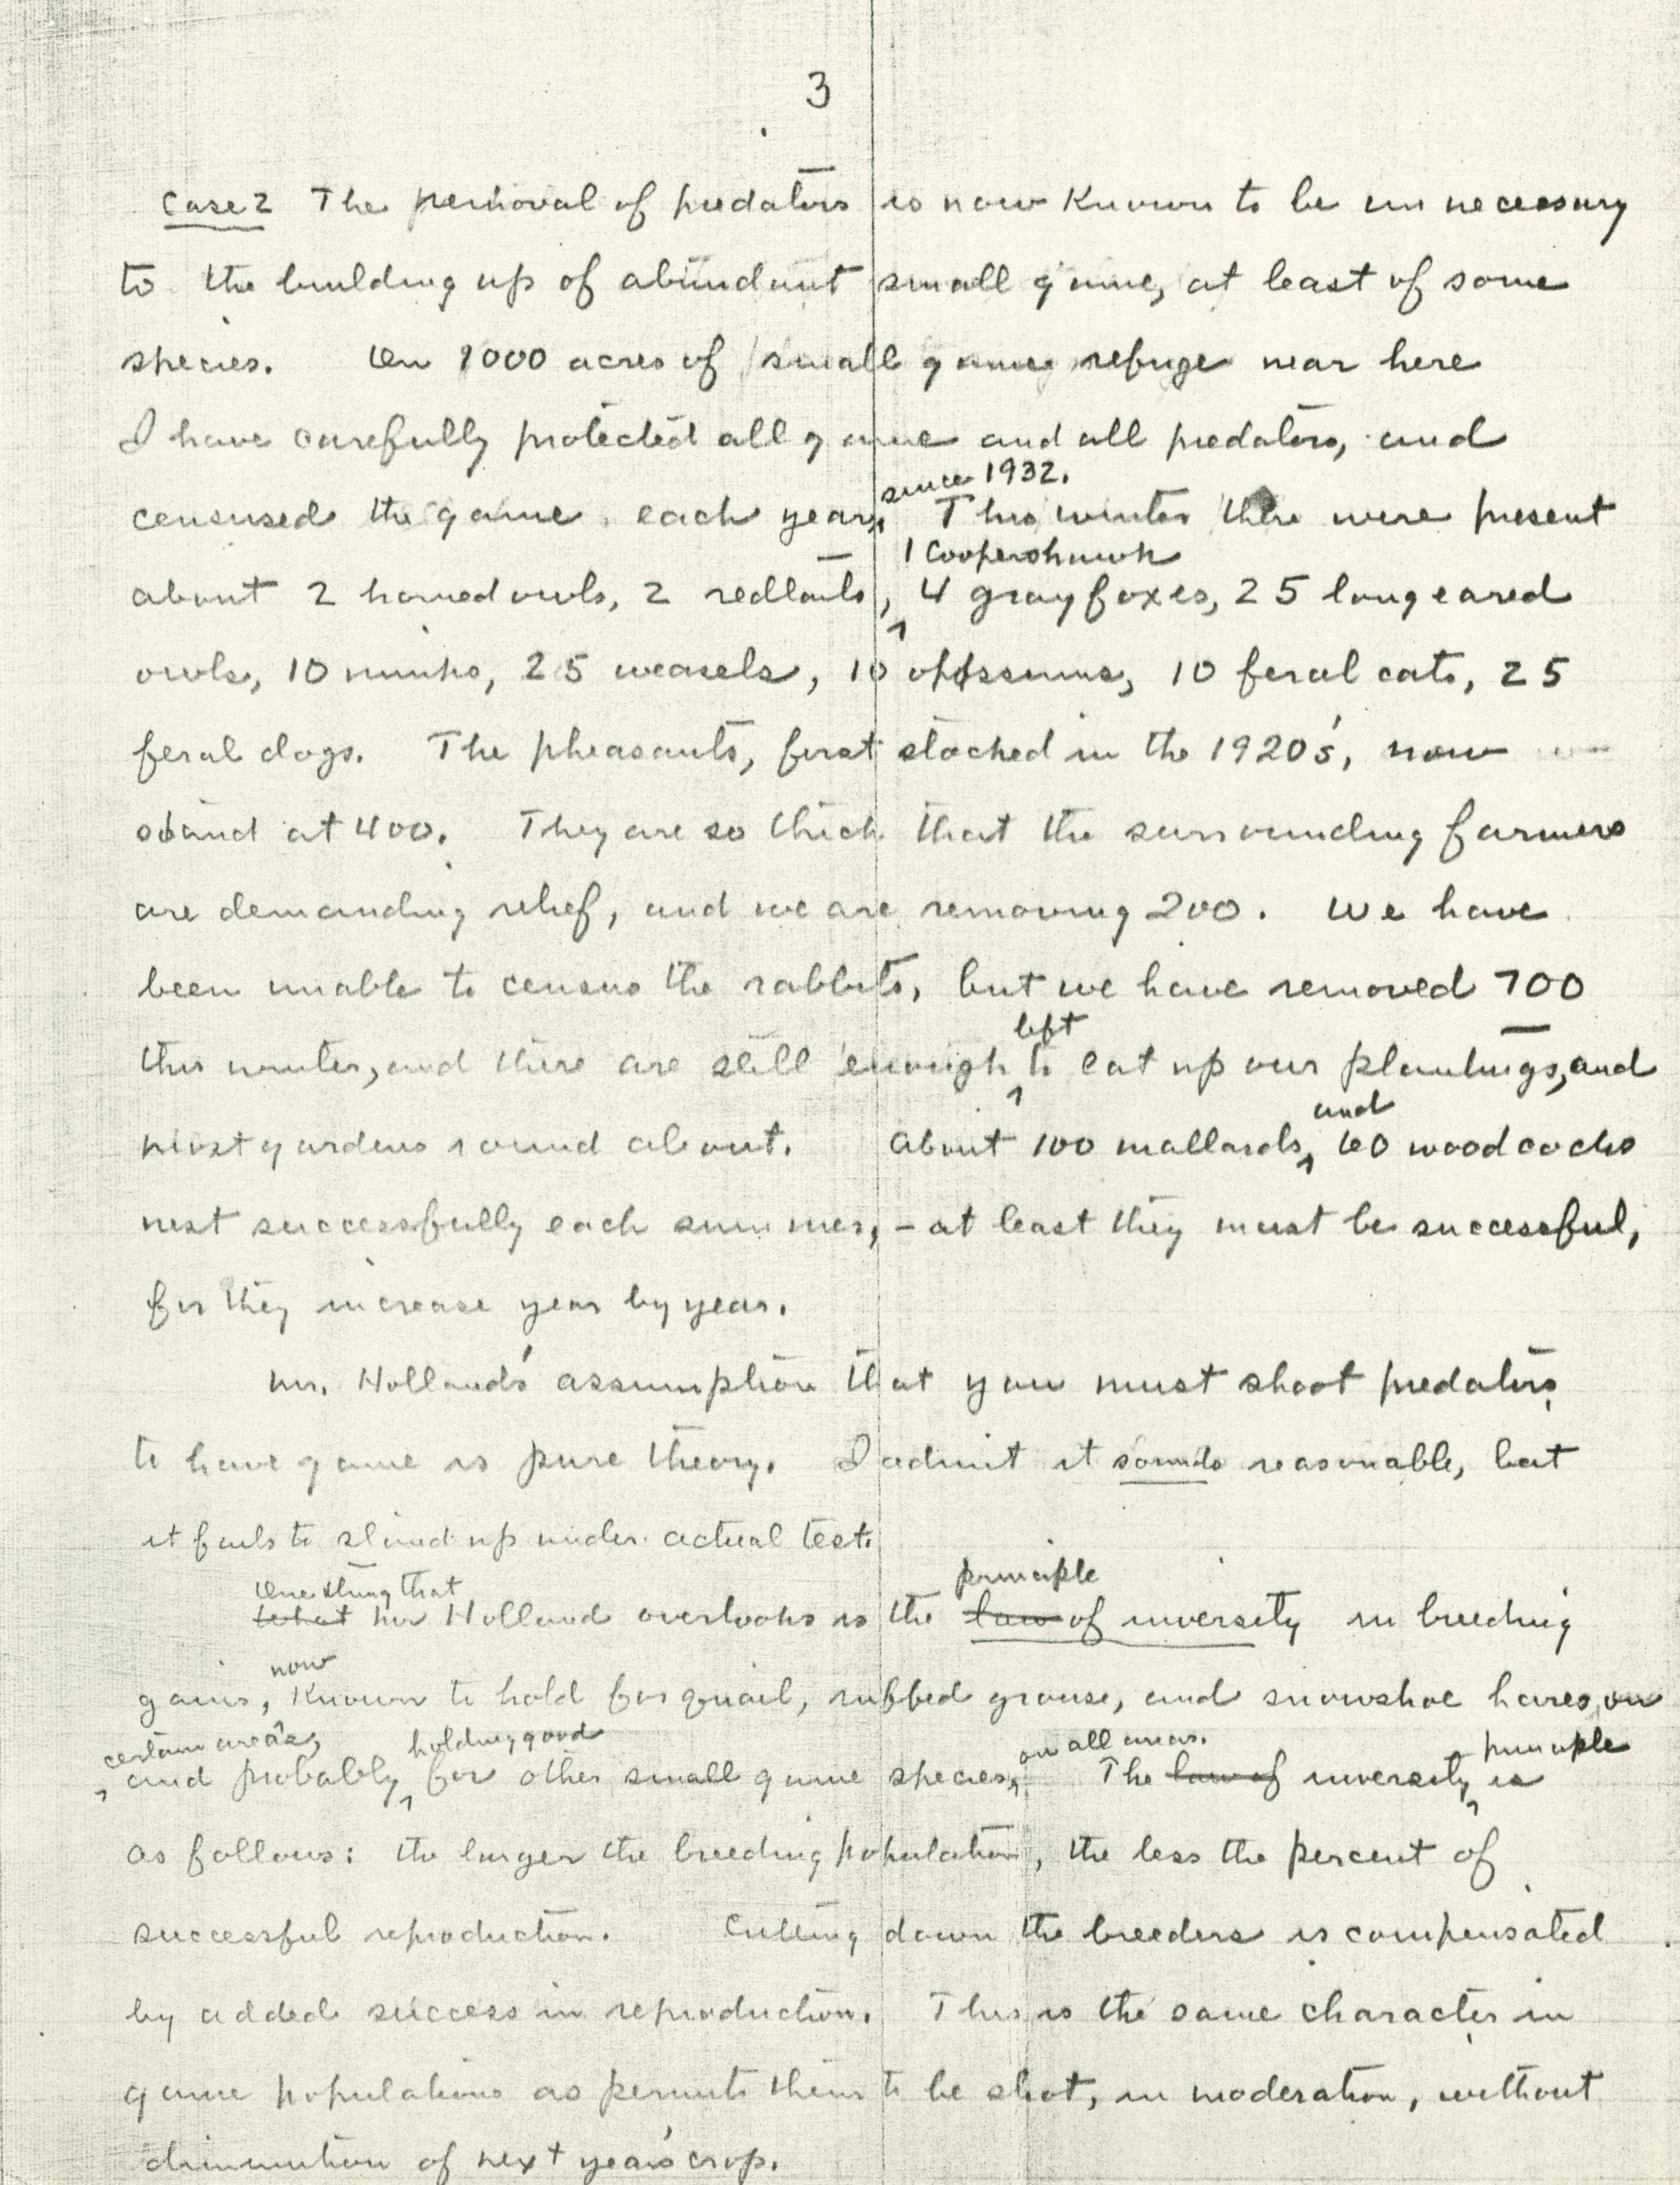 3
Case 2 The removal of predators is now known to be unnecessary
to the building up of abundant small game, at least of some
species. On 1000 acres of small game refuge near here
I have carefully protected all game and all predators, and
since 1932.
censused the game each year, This winter there were present
1 Coopershawk
about 2 horned owls, 2 redtails, 4 gray foxes, 25 long eared
owls, 10 minks, 25 weasels, 10 opossums, 10 feral cats, 25
feral dogs. The pheasants, first stocked in the 1920's, now
stand at 400. They are so thick that the surrounding farmers
are demanding relief, and we are removing 200. We have
been unable to census the rabbits, but we have removed 700
left
this winter, and there are still enough to eat up our plantings, and
and
most gardens round about. About 100 mallards, 60 woodcocks
nest successfully each summer, – at least they must be successful,
for they increase year by year.
Mr. Holland's assumption that you must shoot predators
to have game is pure theory. I admit it sounds reasonable, but
it fails to stand up under actual test.
One thing that principle
What Mr Holland overlooks is the law of inversity in breeding
now
gains, known to hold for quail, ruffed grouse, and snowshoe hares, on
certain areas, holding good on all areas. principle
and probably for other small game species. The law of inversity is
as follows: the larger the breeding population, the less the percent of
successful reproduction. Cutting down the breeders is compensated
by added success in reproduction. This is the same character in
game populations as permits them to be shot, in moderation, without
diminution of next year's crop.